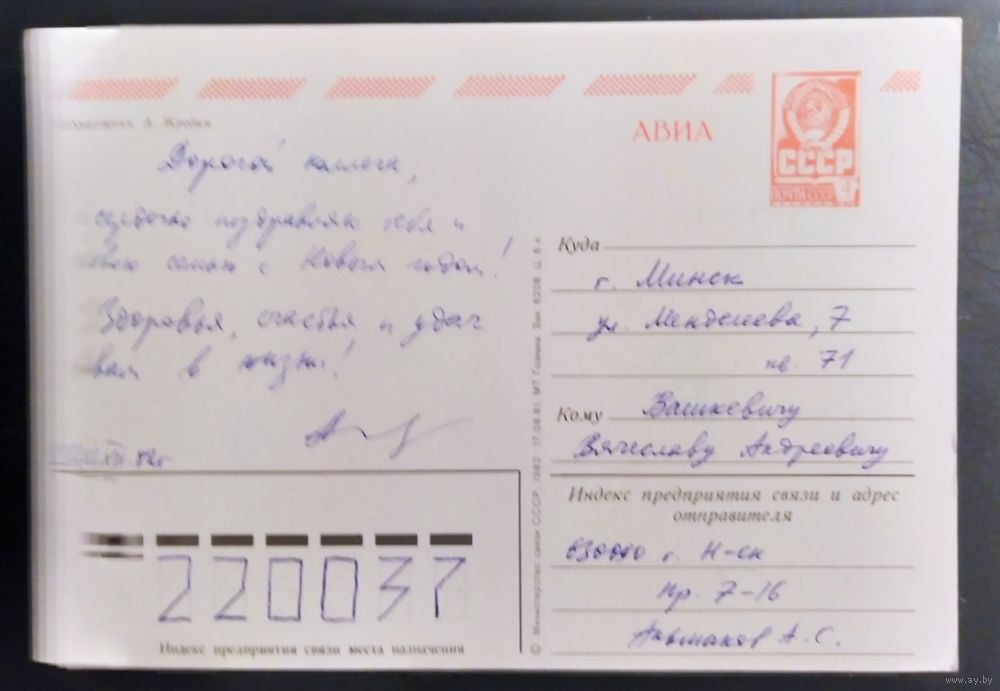 А. Жребин
АВИА
СССР
ПОЧТА СССР
Дорогой коллега,
сердечно поздравляю тебя и
твою семью с Новым годом!
Здоровья, счастья и удач
вам в жизни!
XII. 82г
Куда
г. Минск
ул. Менделеева, 7
кв. 71
Кому Вашкевичу
Вячеславу Андреевичу
Индекс предприятия связи и адрес
отправителя
г. Н-ск
7-16
А. С.
220037
Индекс предприятия связи места назначения
© Министерство связи СССР, 1982 17.08.81. МТ Гознака. Зак. 6208 Ц. 6 к.
www.ay.by